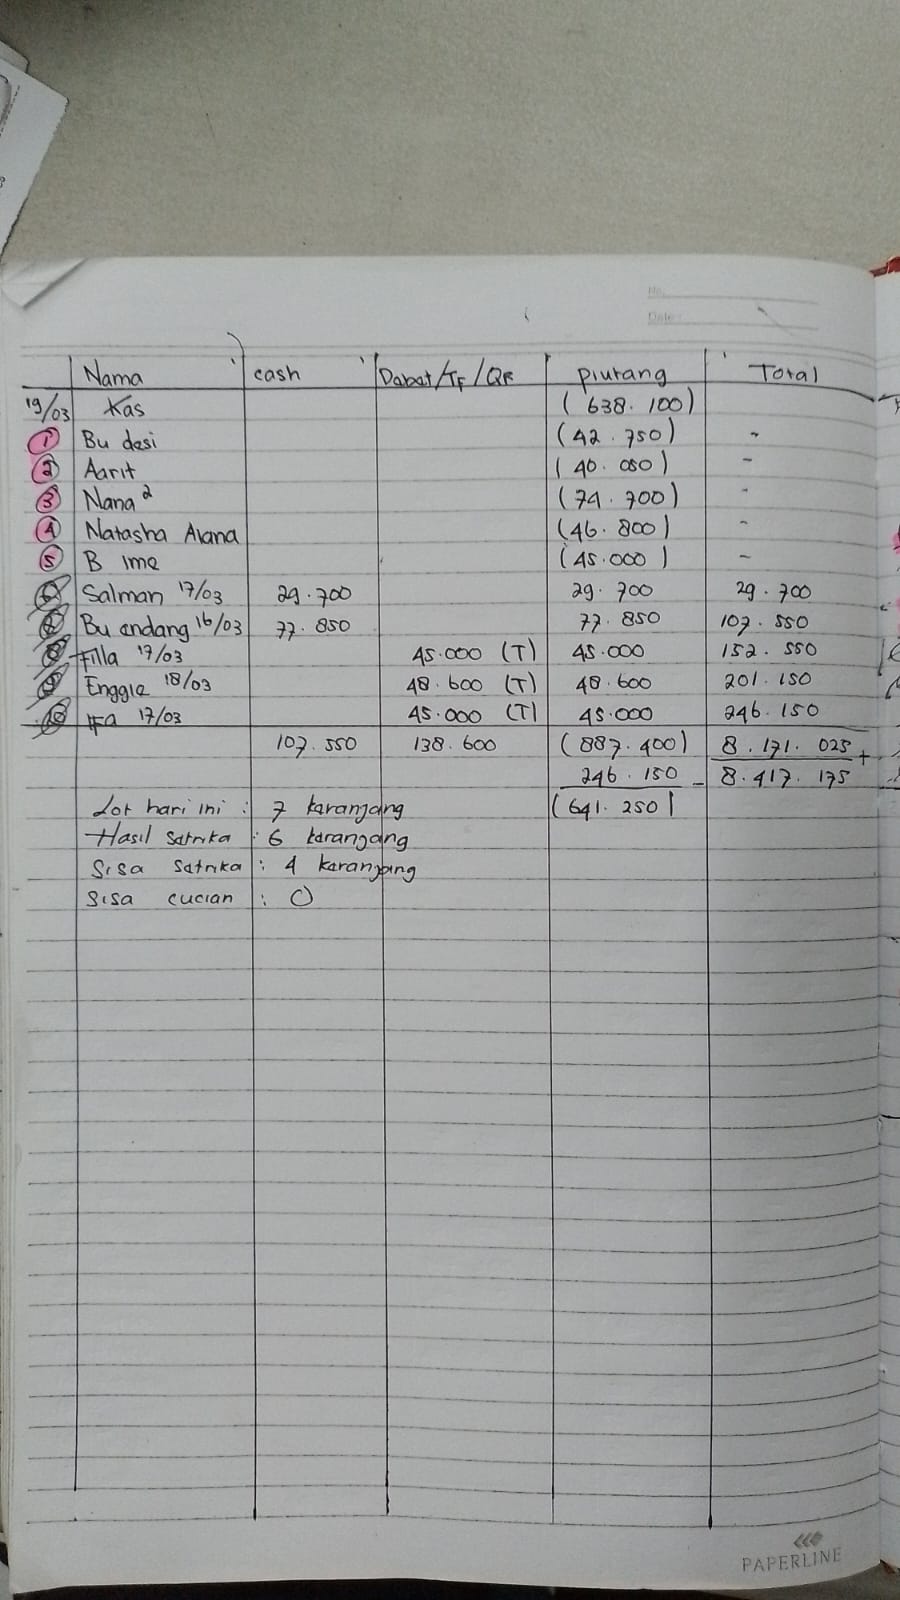 No.
Date:
Nama cash Dabet/TF/QR piutang Total
19/03 Kas (638.100)
1 Bu desi (42.750) -
2 Aarit (40.050) -
3 Nana² (74.700) -
4 Natasha Alana (46.800) -
5 B ime (45.000) -
Salman 17/03 29.700 29.700 29.700
Bu endang 16/03 77.850 77.850 107.550
Filla 17/03 45.000 (T) 45.000 152.550
Enggie 18/03 48.600 (T) 48.600 201.150
IFa 17/03 45.000 (T) 45.000 246.150
107.550 138.600 (887.400) 8.171.025 +
246.150 - 8.417.175
Lot hari ini : 7 karanjang (641.250)
Hasil satrika : 6 karanjang
Sisa satrika : 4 karanjang
Sisa cucian : 0
PAPERLINE